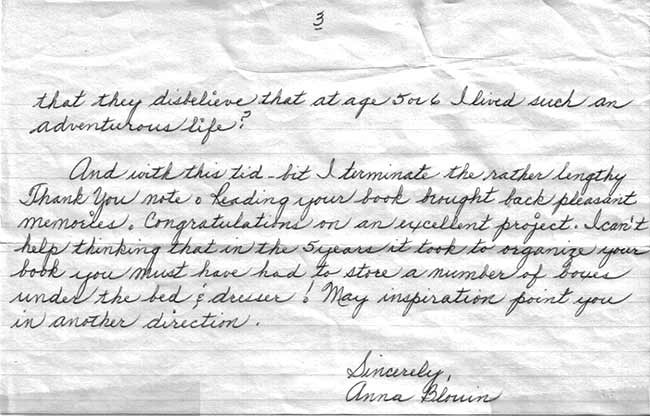 3
that they disbelieve that at age 5 or 6 I lived such an
adventurous life?
And with this tid-bit I terminate the rather lengthy
Thank You note. Reading your book bought back pleasant
memories. Congratulations on an excellent project. I can't
help thinking that in the 5 years it took to organize your
book you must have had to store a number of boxes
under the bed & dresser! May inspiration point you
in another direction.
Sincerely,
Anna Blouin